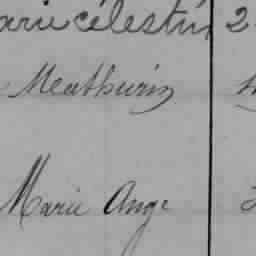 arie célestin 2
Meathurin
Marie Ange